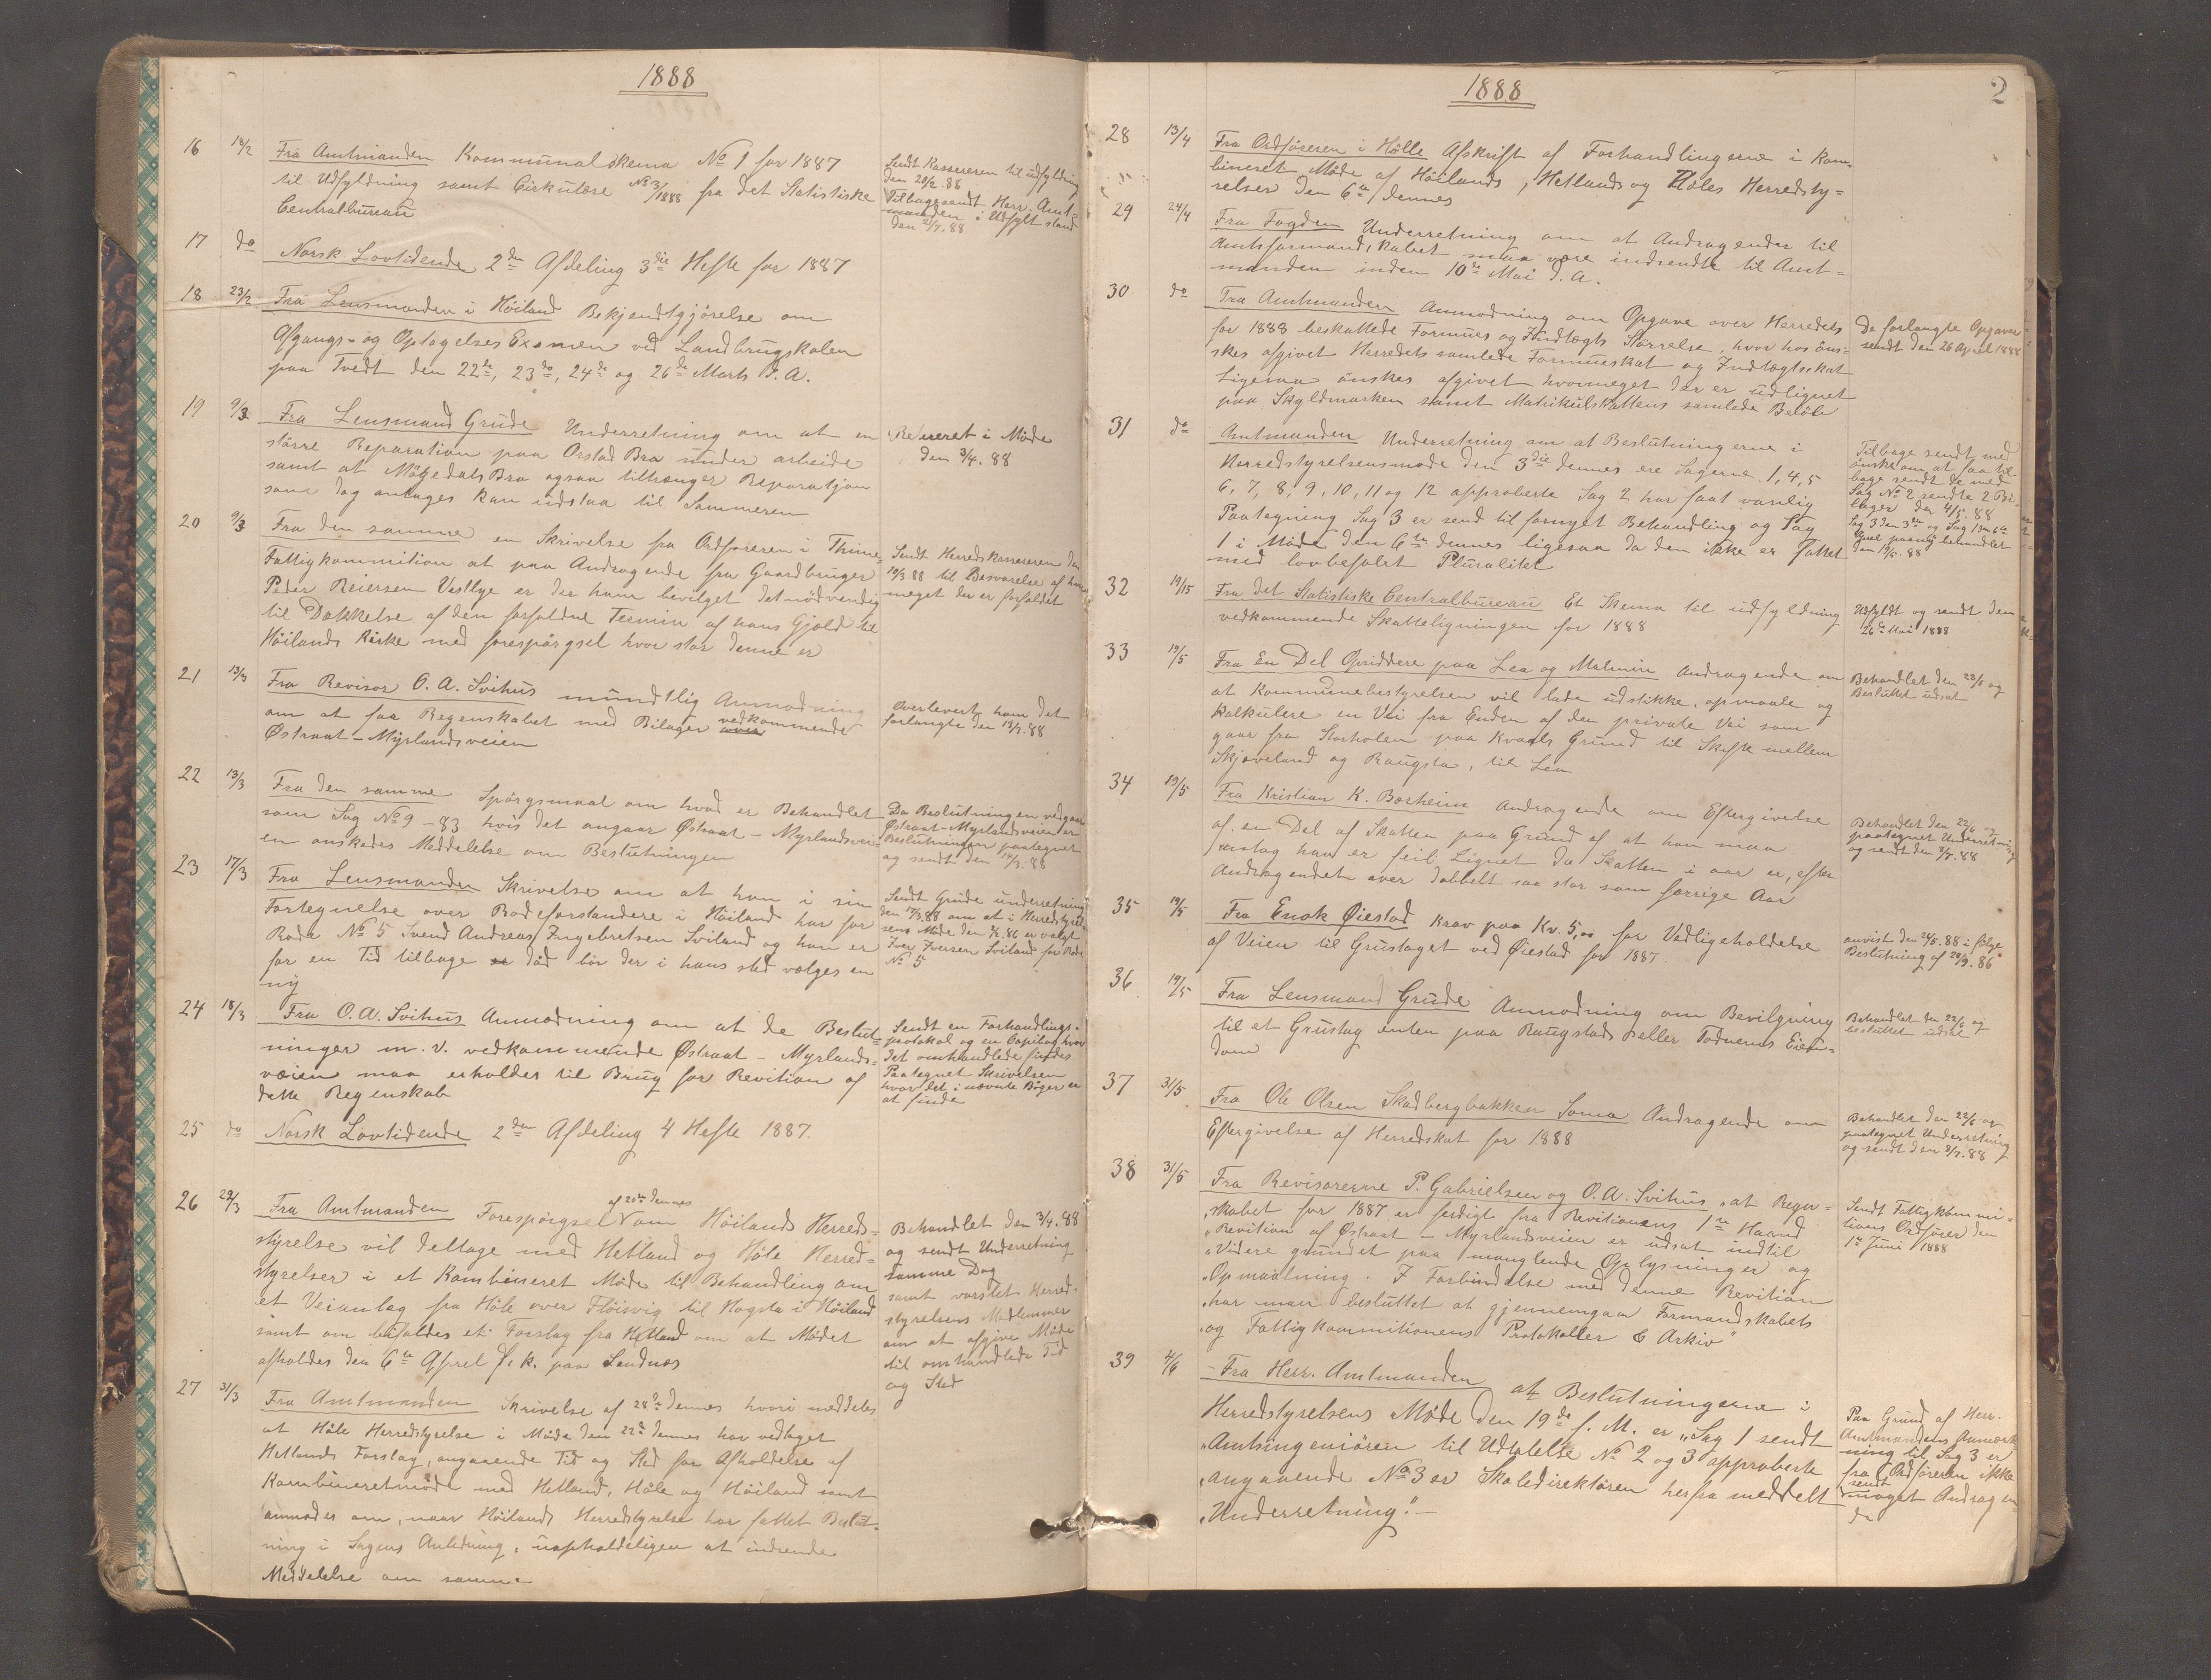 1888
16 18/2 Fra Amtmanden Kommunalskema No 1 for 1887
til Udfyldning samt Cirkulære No 3/1888 fra det Statistiske
Centralbureau
Sendt Kassereren til udfyldning
den 20/2. 88
Tilbagesendt Herr. Amt-
manden i Udfylt stand
den 2/7. 88
17 do Norsk Lovtidende 2den Afdeling 3die Hefte for 1887
18 23/2 Fra Lensmanden i Höiland Bekjendtgjörelse om
Afgangs- og Optagelses Examen ved Landbrugskolen
paa Tvedt den 22de, 23de, 24de og 26de Marts d. A.
19 9/3 Fra Lensmand Grude Underretning om at en
större Reparation paa Orstad Bro under arbeide
samt at Mögedals Bro ogsaa tiltrænger Reparatjon
som dog antages kan udstaa til Sommeren
Refereret i Möde
den 3/4. 88
20 9/3 Fra den samme en Skrivelse fra Ordföreren i Thime
Fattigkommition at paa Andragende fra Gaardbruger
Peder Reiersen Vestlye er der ham bevilget det nödvendig
til Dækkelse af den forfaldne Termin af hans Gjæld til
Höilands Kirke med forespörgsel hvor stor denne er
Sendt Herredskassereren den
19/3 88 til Besvarelse af hvor
meget der er forfaldet
21 13/3 Fra Revisor O. A. Svihus mundtlig Anmodning
om at faa Regenskabet med Bilager vedkommende
Østraat - Myrlandsveien
Overlevert ham det
forlangte den 13/3. 88
22 13/3 Fra den samme Spörgsmaal om hvad er Behandlet
som Sag No 9 - 83 hvis det angaar Østraat - Myrlandsvei-
en önskedes Meddelelse om Beslutningen
Da Beslutningen vedgaar
Østraat-Myrlandsveien er
Beslutningen paategnet
og sendt den 14/3. 88
23 17/3 Fra Lensmanden Skrivelse om at han i sin
Fortegnelse over Rodeforstandere i Höiland har for
Rode No 5 Svend Andreas Ingebretsen Sviland og han er
for en Tid tilbage död bör der i hans sted vælges en
ny
Sendt Grude underretning
den 17/3. 88 om at i Herredstyrel
sens Möde den 3/2. 86 er valgt
Iver Iversen Sviland for Rode
No 5
24 18/3 Fra O. A. Svihus Anmodning om at de Beslut-
ninger m. v. vedkommende Østraat - Myrlands-
væien maa erholdes til Brug for Revition af
dette Regenskab
Sendt en Forhandlings-
protokol og en Copibog hvor
det omhandlede findes
Paategnet Skrivelsen
hvor det i nævnte Böger er
at finde
25 do Norsk Lovtidende 2den Afdeling 4 Hefte 1887.
26 22/3 Fra Amtmanden Forespörgsel af 20de dennes om Höilands Herreds-
styrelse vil deltage med Hetland og Höle Herred-
styrelser i et Kombineret Möde til Behandling om
et Veianlæg fra Höle over Flöisvig til Hogsta i Höiland
samt om bifaldes et Forslag fra Hetland om at Mödet
afholdes den 6te April d. k. paa Sandnæs
Behandlet den 3/4. 88
og sendt Underretning
samme Dag
samt varslet Herred-
styrelsens Medlemmer
om at afgive Möde
til omhandlede Tid
og Sted
27 31/3 Fra Amtmanden Skrivelse af 28de dennes hvori meddeles
at Höle Herredstyrelse i Möde den 22de dennes har vedtaget
Hetlands Forslag, angaaende Tid og Sted for Afholdelse af
Kombineretmöde med Hetland, Höle og Höiland samt
anmodes om, naar Höilands Herredstyrelse har fattet Beslut-
ning i Sagens Anledning, uopholdeligen at indsende
Meddelelse om samme
1888
2
28 13/4 Fra Ordföreren i Hölle Afskrift af Forhandlingerne i Kom-
bineret Möde af Höilands, Hetlands og Höles Herredsty-
relser den 6te dennes
29 24/4 Fra Fogden Underretning om at Andragender til
Amtsformandskabet maa være indsendte til Amt-
manden inden 10de Mai d. A.
30 do Fra Amtmanden Anmodning om Opgave over Herredets
for 1888 beskattede Formues og Indtægts Störrelse, hvor hos öns-
skes opgivet Herredets samlede Formueskat og Indtægtsskat
Ligesaa önskes afgivet hvormeget der er udlignet
paa Skyldmarken samt Matrikulskattens samlede Belöb
De forlangte Opgaver
sendt den 26 April 1888
31 do Amtmanden Underretning om at Beslutningerne i
Herredstyrelsensmöde den 3die dennes ere Sagerne 1, 4, 5
6, 7, 8, 9, 10, 11 og 12 approberte Sag 2 har faat vanlig
Paategning Sag 3 er send til fornyet Behandling og Sag
1 i Möde den 6te dennes ligesaa da den ikke er fattet
med lovbefalet Pluralitet
Tilbage sendt med
önske om at faa til-
bage sendt de med
Sag No 2 sendte 2 Bi-
lager den 4/5. 88
Sag 3 den 3die og Sag 1 den 6te
April paany behandlet
den 19/5. 88
32 19/5 Fra det Statistiske Centralbureau Et Skema til udfyldning
vedkommende Skatteligningen for 1888
Udfyldt og sendt den
26de Mai 1888
33 19/5 Fra En Del Opsiddere paa Lea og Malmin Andragende om
at Kommunebestyrelsen vil lade udstikke, opmaale og
Kalkulere en Vei fra Enden af den private Vei som
gaar fra Storholen paa Kvaals Grund til Skifte mellem
Skjæveland og Raugsta, til Lea
Behandlet den 22/6 og
Besluttet udsat
34 19/5 Fra Kristian K. Borheim Andragende om Eftergivelse
af en Del af Skatten paa Grund af at han maa
antag han er feil Lignet da Skatten i aar er, efter
Andragendet over dobbelt saa stor som forrige Aar
Behandlet den 22/6 og
paategnet Underretning
og sendt den 3/7. 88
35 19/5 Fra Enok Øiestad Krav paa Kr. 5,00 for Vedligeholdelse
af Veien til Grustaget ved Øiestad for 1887.
anvist den 24/5. 88 i fölge
Beslutning af 20/9. 86
36 19/5 Fra Lensmand Grude Anmodning om Bevilgning
til et Grustag enten paa Raugstads eller Todnems Eien-
dom
Behandlet den 22/6 og
besluttet udsat
37 31/5 Fra Ole Olsen Skadbergbakken Soma Andragende om
Eftergivelse af Herredskat for 1888
Behandlet den 22/6 og
paategnet Underretning
og sendt den 3/7. 88
38 31/5 Fra Revisorerne P. Gabrielsen og O. A. Svihus, „at Regn-
„skabet for 1887 er færdigt fra Revitionens 1te Haand
„Revition af Østraat - Myrlandsveien er udsat indtil
„Videre grundet paa manglende Oplysninger og
„Opmaalning. I Forbindelse med denne Revition
„har man besluttet at gjennemgaa Formandskabets
„og Fattigkommitionens Protokoller & Arkiv"
Sendt Fattigkommi-
tions Ordförer den
1te Juni 1888
39 4/6 Fra Herr. Amtmanden at Beslutningerne i
Herredstyrelsens Möde den 19de f. M. er „Sag 1 sendt
„Amtsingeniören til Udtalelse No 2 og 3 approberte
„angaaende No 3 er Skoledirektören herfra meddelt
„Underretning". —
Paa Grund af Herr.
Amtmandens Anmærk
ning til Sag 3 er
fra Ordföreren ikke
sendt
noget Andragen-
de